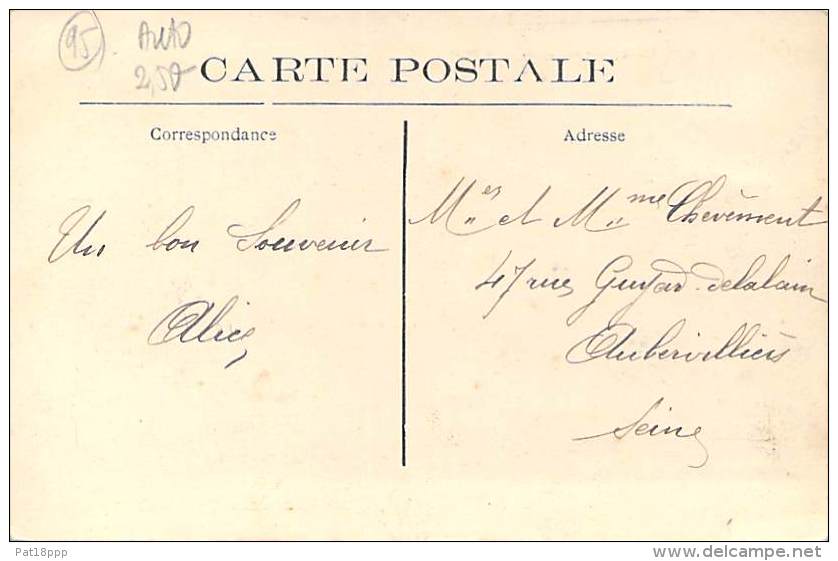 95 Auto
2,50
CARTE POSTALE
Correspondance
Adresse
Un bon Souvenir
Alice
Mes et Mme Chevement
47 rue Guyard-delalain
Aubervilliers
Seine
Pat18ppp
www.delcampe.net